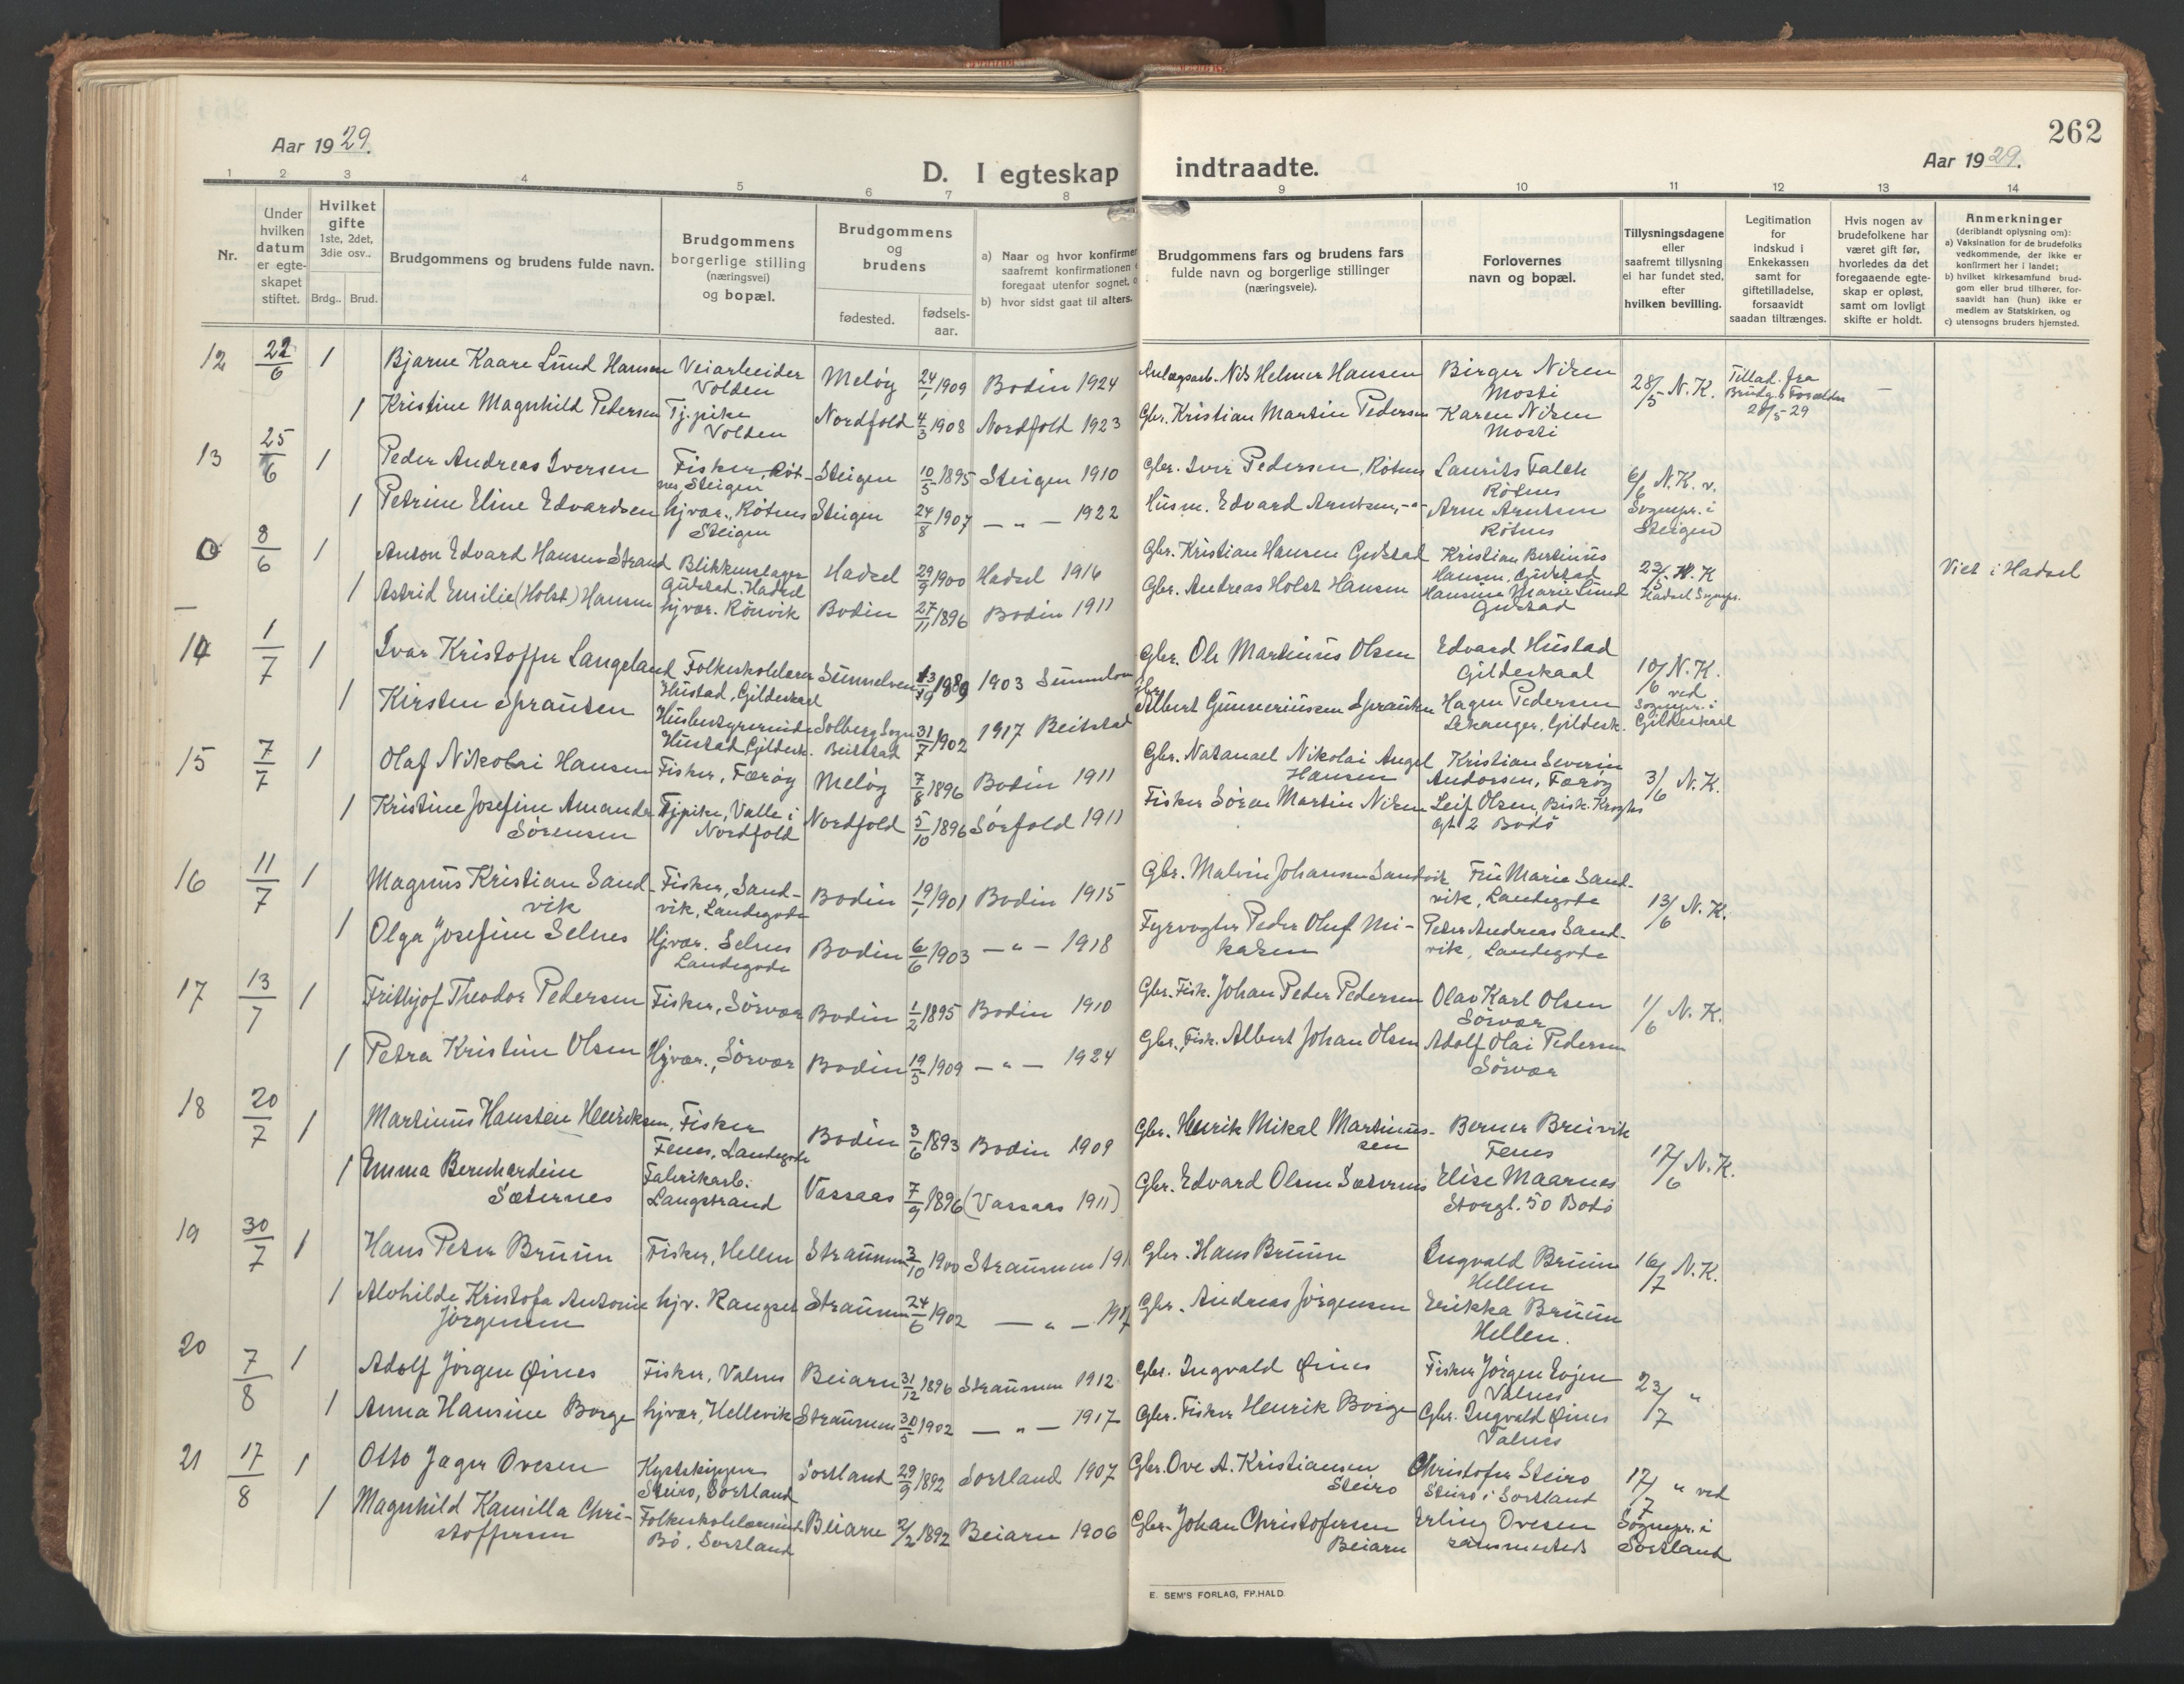 262
Aar 1929.
D. I egteskap indtraadte.
Aar 1929.
1 2 3 4 5 6 7 8 9 10 11 12 13 14
Nr.
Under hvilken datum er egte-skapet stiftet.
Hvilket gifte 1ste, 2det, 3die osv..
Brdg.. Brud.
Brudgommens og brudens fulde navn.
Brudgommens borgerlige stilling (næringsvei) og bopæl.
Brudgommens og brudens
fødested.
fødsels-aar.
a) Naar og hvor konfirmer
saafremt konfirmationen
foregaat utenfor sognet,
b) hvor sidst gaat til alters.
Brudgommens fars og brudens fars
fulde navn og borgerlige stillinger
(næringsveie).
Forlovernes
navn og bopæl.
Tillysningsdagene
eller
saafremt tillysning
ei har fundet sted,
efter
hvilken bevilling.
Legitimation
for
indskud i
Enkekassen
samt for
giftetilladelse,
forsaavidt
saadan tiltrænges.
Hvis nogen av
brudefolkene har
været gift før,
hvorledes da det
foregaaende egte-
skap er opløst,
samt om lovligt
skifte er holdt.
Anmerkninger
(deriblandt oplysning om):
a) Vaksination for de brudefolks
vedkommende, der ikke er
konfirmert her i landet;
b) hvilket kirkesamfund brud-
gom eller brud tilhører, for-
saavidt han (hun) ikke er
medlem av Statskirken, og
c) utensogns bruders hjemsted.
12 22/6 1 Bjarne Kaare Lund Hansen Veiarbeider Volden Meløy 24/1 1909 Bodin 1924 Anlægsarb. Nils Helmer Hansen Birger Nilsen Mosti 28/5 N.K. Tillad. fra Brudg.s Forældre 28/5-29 —
1 Kristine Magnhild Pedersen Tj.pike Volden Nordfold 4/3 1908 Nordfold 1923 Gbr. Kristian Martin Pedersen Karen Nilsen Mosti
13 25/6 1 Peder Andreas Iversen Fisker, Røt-nes Steigen Steigen 10/5 1895 Steigen 1910 Gbr. Iver Pedersen, Røtnes Laurits Falch Røtnes 6/6 N.K. v. Sognepr. i Steigen
1 Petrine Eline Edvardsen hjvær., Røtnes Steigen Steigen 24/8 1907 — " — 1922 Husm. Edvard Arntsen, -"- Arne Arntsen Røtnes
0 8/6 1 Anton Edvard Hansen Strand Blikkenslager Guvstad, Hadsel Hadsel 29/9 1900 Hadsel 1916 Gbr. Kristian Hansen Guvstad Kristian Bertinius Hansen, Guvstad 22/5 N.K Hadsel Sognepr. Viet i Hadsel
— 1 Astrid Emilie (Holst) Hansen hjvær. Rönvik Bodin 27/11 1896 Bodin 1911 Gbr. Andreas Holst Hansen Hansine Marie Lund Guvstad
14 1/7 1 Ivar Kristoffer Langeland Folkeskolelærer Hustad, Gildeskaal Sunnelven 13/9 1889 1903 Gbr. Ole Martinus Olsen Edvard Hustad Gildeskaal 10/6 N.K. ved Sognepr. i Gildeskaal
1 Kirsten Sprauten Husbestyrerinde Hustad, Gildesk. Solberg Sogn Beitstad 31/7 1902 1917 Beitstad Gbr. Albert Gunneriussen Sprauten Hagen Pedersen Lekanger, Gildesk.
15 7/7 1 Olaf Nikolai Hansen Fisker, Færøy Meløy 7/8 1896 Bodin 1911 Gbr. Natanael Nikolai Angel Hansen Kristian Severin Andorsen, Færøy 3/6 N.K.
1 Kristine Josefine Amanda Sørensen Tjpike, Valle i Nordfold Nordfold 5/10 1896 Sørfold 1911 Fisker Sören Martin Nilsen Leif Olsen, Bisk. Kroghs gt 2 Bodö
16 11/7 1 Magnus Kristian Sand-vik Fisker, Sand-vik, Landegode Bodin 19/1 1901 Bodin 1915 Gbr. Malvin Johansen Sandvik Fru Marie Sand-vik, Landegode 13/6 N.K.
1 Olga Josefine Selnes Hjvær. Selnes Landegode Bodin 6/6 1903 — " — 1918 Fyrvogter Peder Oluf Mi-kalsen Peter Andreas Sand-vik, Landegode
17 13/7 1 Frithjof Theodor Pedersen Fisker, Sörvær Bodin 1/2 1895 Bodin 1910 Gbr. Fisk. Johan Peder Pedersen Olav Karl Olsen Sörvær 1/6 N.K.
1 Petra Kristine Olsen Hjvær., Sörvær Bodin 19/5 1909 — " — 1924 Gbr., Fisk. Albert Johan Olsen Adolf Olai Pedersen Sörvær
18 20/7 1 Martinus Hansteen Henriksen, Fisker Fenes, Landegode Bodin 3/6 1893 Bodin 1909 Gbr. Henrik Mikal Martinus-sen Berner Breivik Fenes 17/6 N.K.
1 Emma Bernhardine Sæternes Fabrikarb. Langstrand Vassaas 7/9 1896 (Vassaas 1911) Gbr. Edvard Olsen Sæternes Elise Maarnes Storgt. 50 Bodö
19 30/7 1 Hans Peter Bruun Fisker, Hellen Straumen 3/10 1900 Straumen 191 Gbr. Hans Bruun Ingvald Bruun Hellen 16/7 N.K.
1 Alvhilde Kristofa Antonie Jörgensen hjv. Kangset Straumen 24/6 1902 — " — 1917 Gbr. Andreas Jörgensen Erikka Bruun Hellen.
20 7/8 1 Adolf Jörgen Øines Fisker, Valnes Beiarn 31/12 1896 Straumen 1912 Gbr. Ingvald Øines Fisker Jörgen Evjen Valnes 23/7 "
1 Anna Hansine Borge hjvær, Hellevik Straumen 30/5 1902 — " — 1917 Gbr. Fisker Henrik Borge Gbr. Ingvald Øines Valnes
21 17/8 1 Otto Jager Ovesen Kystskipper Steiro, Sortland Sortland 29/9 1892 Sortland 1907 Gbr. Ove A. Kristiansen Steiro Christofer Steiro Steiro i Sortland 17/7 " ved Sognepr. i Sortland
1 Magnhild Kamilla Chri-stoffersen Folkeskolelærerinde Bö, Sortland Beiarn 2/2 1892 Beiarn 1906 Gbr. Johan Christofersen Beiarn Erling Ovesen sammesteds
E. SEM'S FORLAG, FR.HALD.